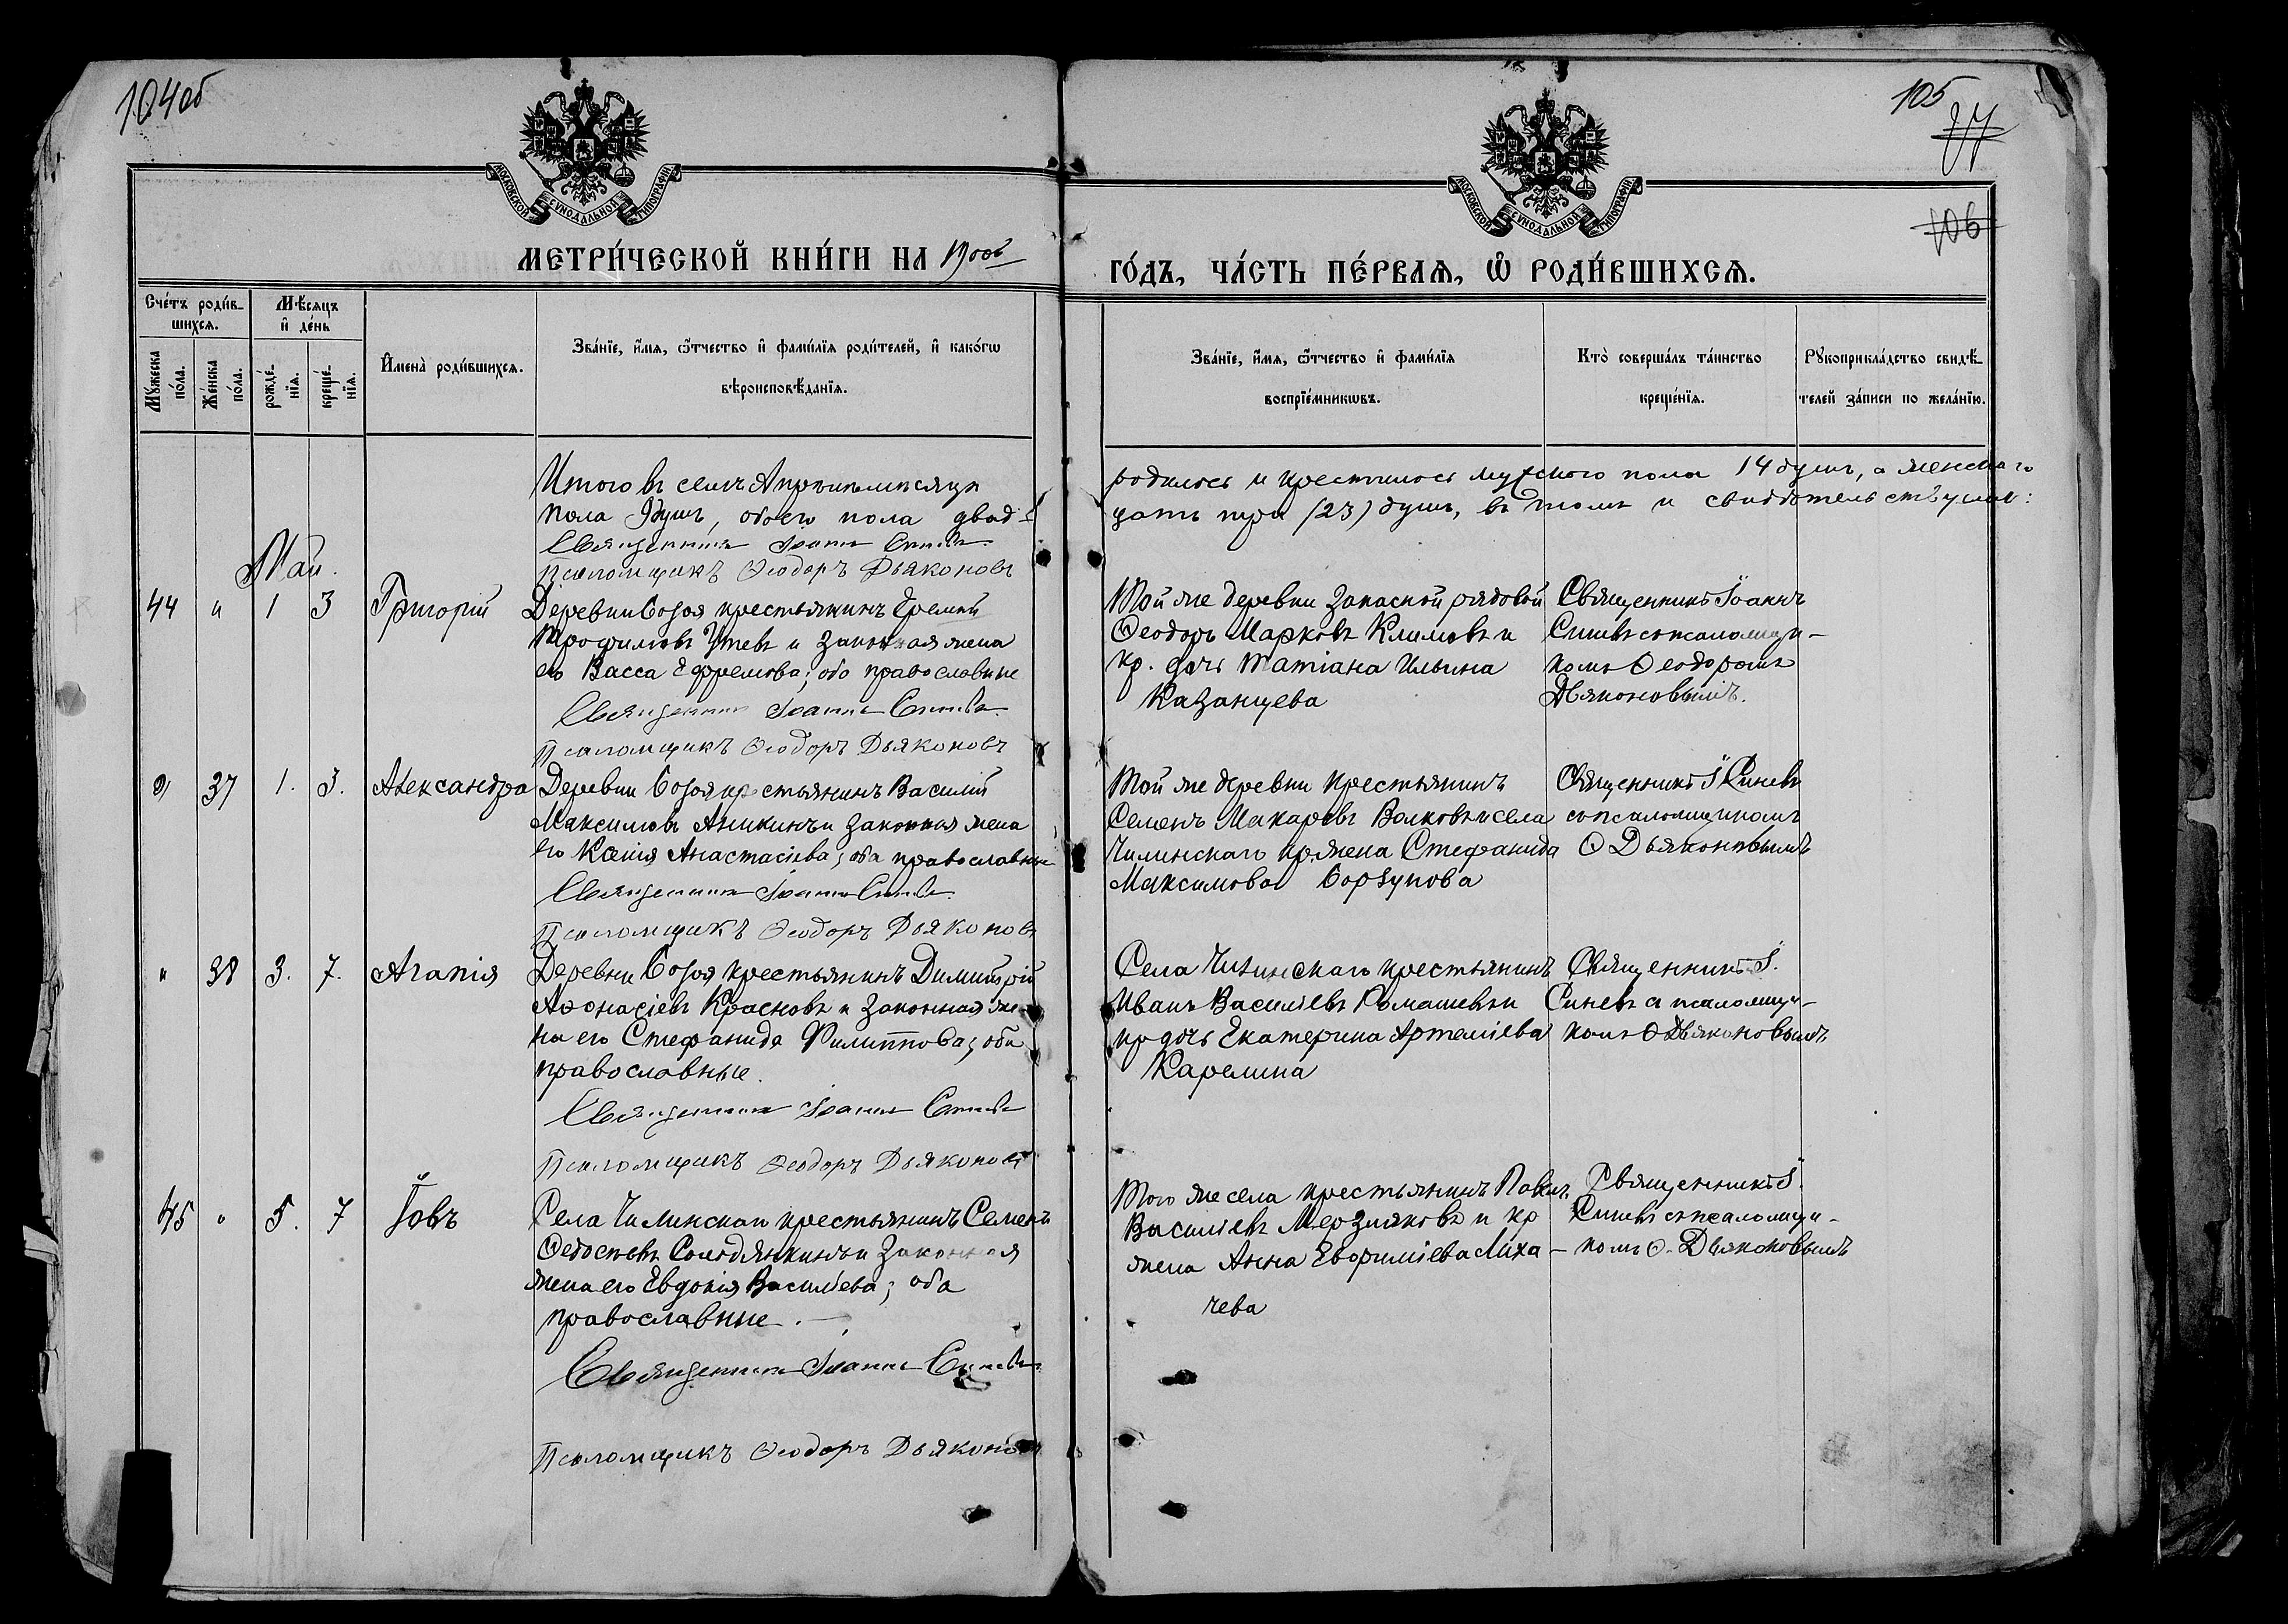 104об
105
77
106
МОСКОВСКОЙ СѴНОДАЛЬНОЙ ТИПОГРАФІИ
МОСКОВСКОЙ СѴНОДАЛЬНОЙ ТИПОГРАФІИ
МЕТРИ́ЧЕСКОЙ КНИ́ГИ НА
ГО́ДЪ, ЧА́СТЬ ПЕ́РВАѦ, Ѡ҆ РОДИ́ВШИХСѦ.
Сче́тъ роди́в-
шихсѧ.
Мѣ́сѧцъ
и҆ де́нь
Мꙋ́жеска
по́ла.
Же́нска
по́ла.
рожде́-
нїѧ.
креще́-
нїѧ.
И҆мена̀ роди́вшихсѧ.
Зва́нїе, и҆́мѧ, ѻ҆́тчество и҆ фами́лїѧ роди́телей, и҆ како́гѡ
вѣроисповѣ́данїѧ.
Зва́нїе, и҆́мѧ, ѻ҆́тчество и҆ фами́лїѧ
воспрїе́мникѡвъ.
Кто̀ соверша́лъ та́инство
креще́нїѧ.
Рꙋкоприкла́дство свидѣ́-
телей за́писи по жела́нїю.
Итого въ семъ Апрѣлѣ мѣсяцѣ
пола 9 душъ, обоего пола двад-
родилось и крестилось мужского пола 14 душъ, а женскаго
цать три (23) душъ, въ томъ и свидѣтельствуемъ:
Священникъ Іоаннъ Синевъ
Псаломщикъ Ѳеодоръ Дьяконовъ
Май.
44 " 1 3 Григорій
Деревни Созоя крестьянинъ Еремей
Трофимовъ Утевъ и законная жена
его Васса Ефремова; оба православные
Священникъ Іоаннъ Синевъ
Псаломщикъ Ѳеодоръ Дьяконовъ
Той же деревни запасной рядовой
Ѳеодоръ Марковъ Климовъ и
кр. дочь Татіана Ильина
Казанцева
Священникъ Іоаннъ
Синевъ съ псаломщи-
комъ Ѳеодоромъ
Дьяконовымъ.
" 37 1. 3. Александра
Деревни Созоя крестьянинъ Василій
Максимовъ Аникинъ и законная жена
его Ксенія Анастасіева; оба православные
Священникъ Іоаннъ Синевъ
Псаломщикъ Ѳеодоръ Дьяконовъ
Той же деревни крестьянинъ
Семенъ Макаровъ Волковъ и села
Чилинскаго кр. жена Стефанида
Максимова Борзунова
Священникъ І Синевъ
съ псаломщикомъ
Ѳ Дьяконовымъ
" 38 3. 7. Агапія
Деревни Созоя крестьянинъ Димитрій
Аѳонасіевъ Красновъ и законная же-
на его Стефанида Филиппова; оба
православные.
Священникъ Іоаннъ Синевъ
Псаломщикъ Ѳеодоръ Дьяконовъ
Села Чилинскаго крестьянинъ
Иванъ Василіевъ Ромашевъ и
кр дочь Екатерина Артеміева
Карелина
Священникъ І.
Синевъ съ псаломщи-
комъ Ѳ Дьяконовымъ
45 " 5. 7 Іовъ
Села Чилинскаго крестьянинъ Семенъ
Ѳедосѣевъ Солодянкинъ и законная
жена его Евдокія Васильева; оба
православные.
Священникъ Іоаннъ Синевъ
Псаломщикъ Ѳеодоръ Дьяконовъ
Того же села крестьянинъ Павелъ
Василіевъ Мерзляковъ и кр
жена Анна Евфиміева Лиха-
чева
Священникъ І.
Синевъ съ псаломщи-
комъ Ѳ. Дьяконовымъ